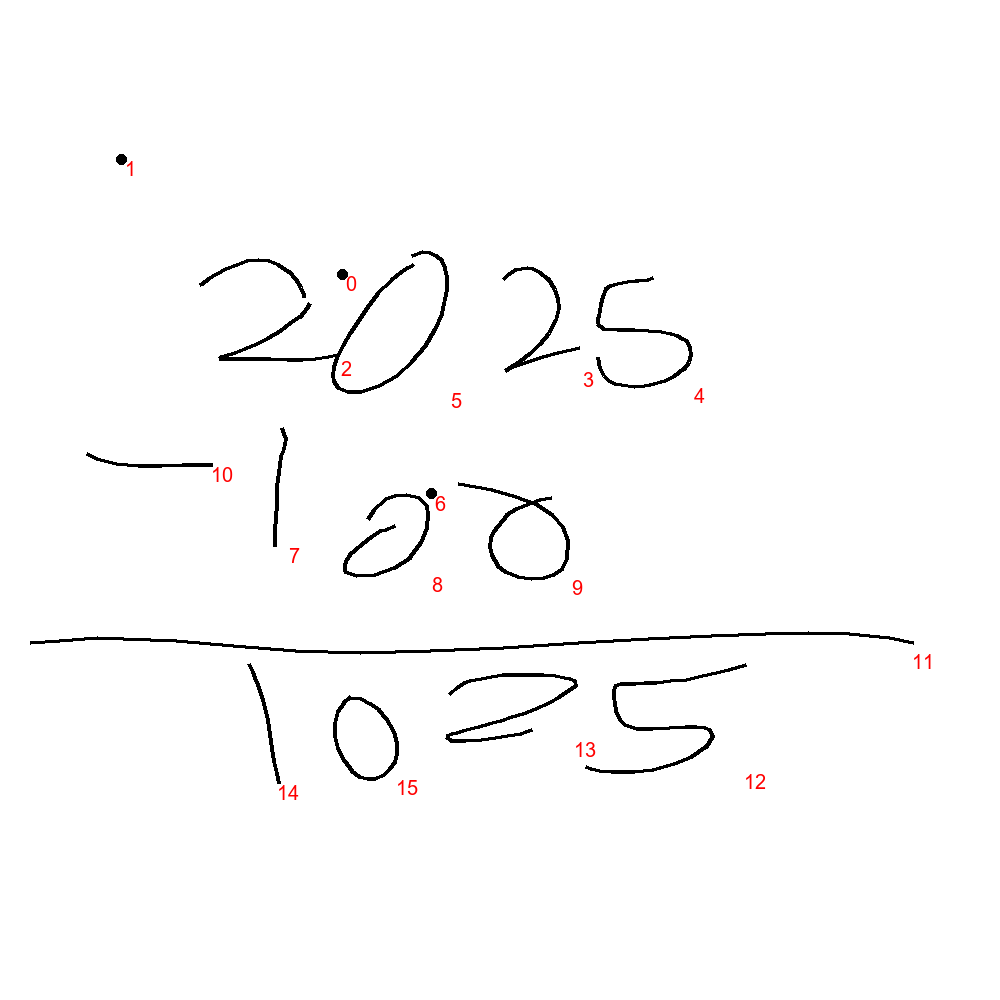 1
0
2025
2 5 3 4
- 100
10 6
7 8 9
11
1025
13
14 15 12